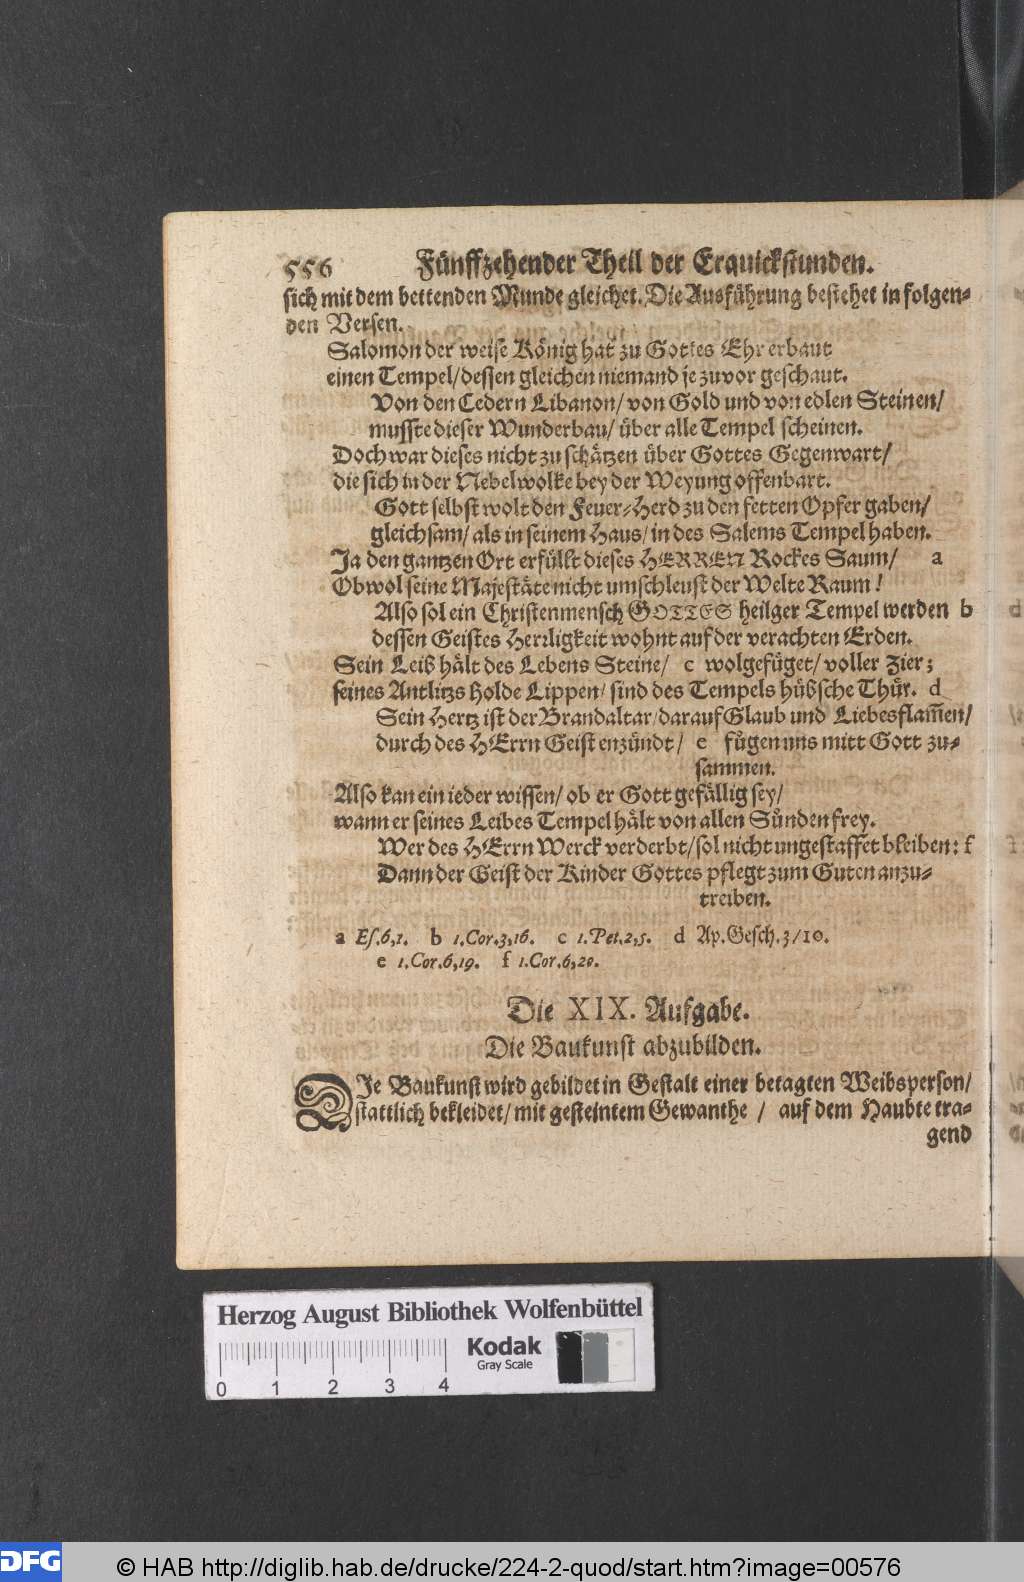 556 Fünffzehender Theil der Erquickstunden.
sich mit dem bettenden Munde gleichet. Die Ausführung bestehet in folgen-
den Versen.
Salomon der weise König hat zu Gottes Ehr erbaut
einen Tempel/dessen gleichen niemand je zuvor geschaut.
Von den Cedern Libanon/ von Gold und von edlen Steinen/
musste dieser Wunderbau/ über alle Tempel scheinen.
Doch war dieses nicht zu schätzen über Gottes Gegenwart/
die sich in der Nebelwolke bey der Weyung offenbart.
Gott selbst wolt den Feuer-Herd zu den fetten Opfer gaben/
gleichsam/ als in seinem Haus/ in des Salems Tempel haben.
Ja den gantzen Ort erfüllt dieses HERREN Rockes Saum/ a
Obwol seine Majestäte nicht umschleust der Welte Raum!
Also sol ein Christenmensch GOTTES heilger Tempel werden b
dessen Geistes Herrligkeit wohnt auf der verachten Erden.
Sein Leib hält des Lebens Steine/ c wolgefüget/ voller Zier;
seines Antlitzs holde Lippen/ sind des Tempels hübsche Thür. d
Sein Hertz ist der Brandaltar/darauf Glaub und Liebesflam̃en/
durch des HErrn Geist enzündt/ e fügen uns mitt Gott zu-
sammen.
Also kan ein ieder wissen/ ob er Gott gefällig sey/
wann er seines Leibes Tempel hält von allen Sünden frey.
Wer des HErrn Werck verderbt/sol nicht ungestaffet bleiben: f
Dann der Geist der Kinder Gottes pflegt zum Guten anzu-
treiben.
a Es.6,1. b 1.Cor.3,16. c 1.Pet.2,5. d Ap.Gesch.3/10.
e 1.Cor.6,19. f 1.Cor.6,20.
Die XIX. Aufgabe.
Die Baukunst abzubilden.
DIe Baukunst wird gebildet in Gestalt einer betagten Weibsperson/
stattlich bekleidet/ mit gesteintem Gewanthe / auf dem Haubte tra-
gend
Herzog August Bibliothek Wolfenbüttel
Kodak
Gray Scale
0 1 2 3 4
DFG © HAB http://diglib.hab.de/drucke/224-2-quod/start.htm?image=00576